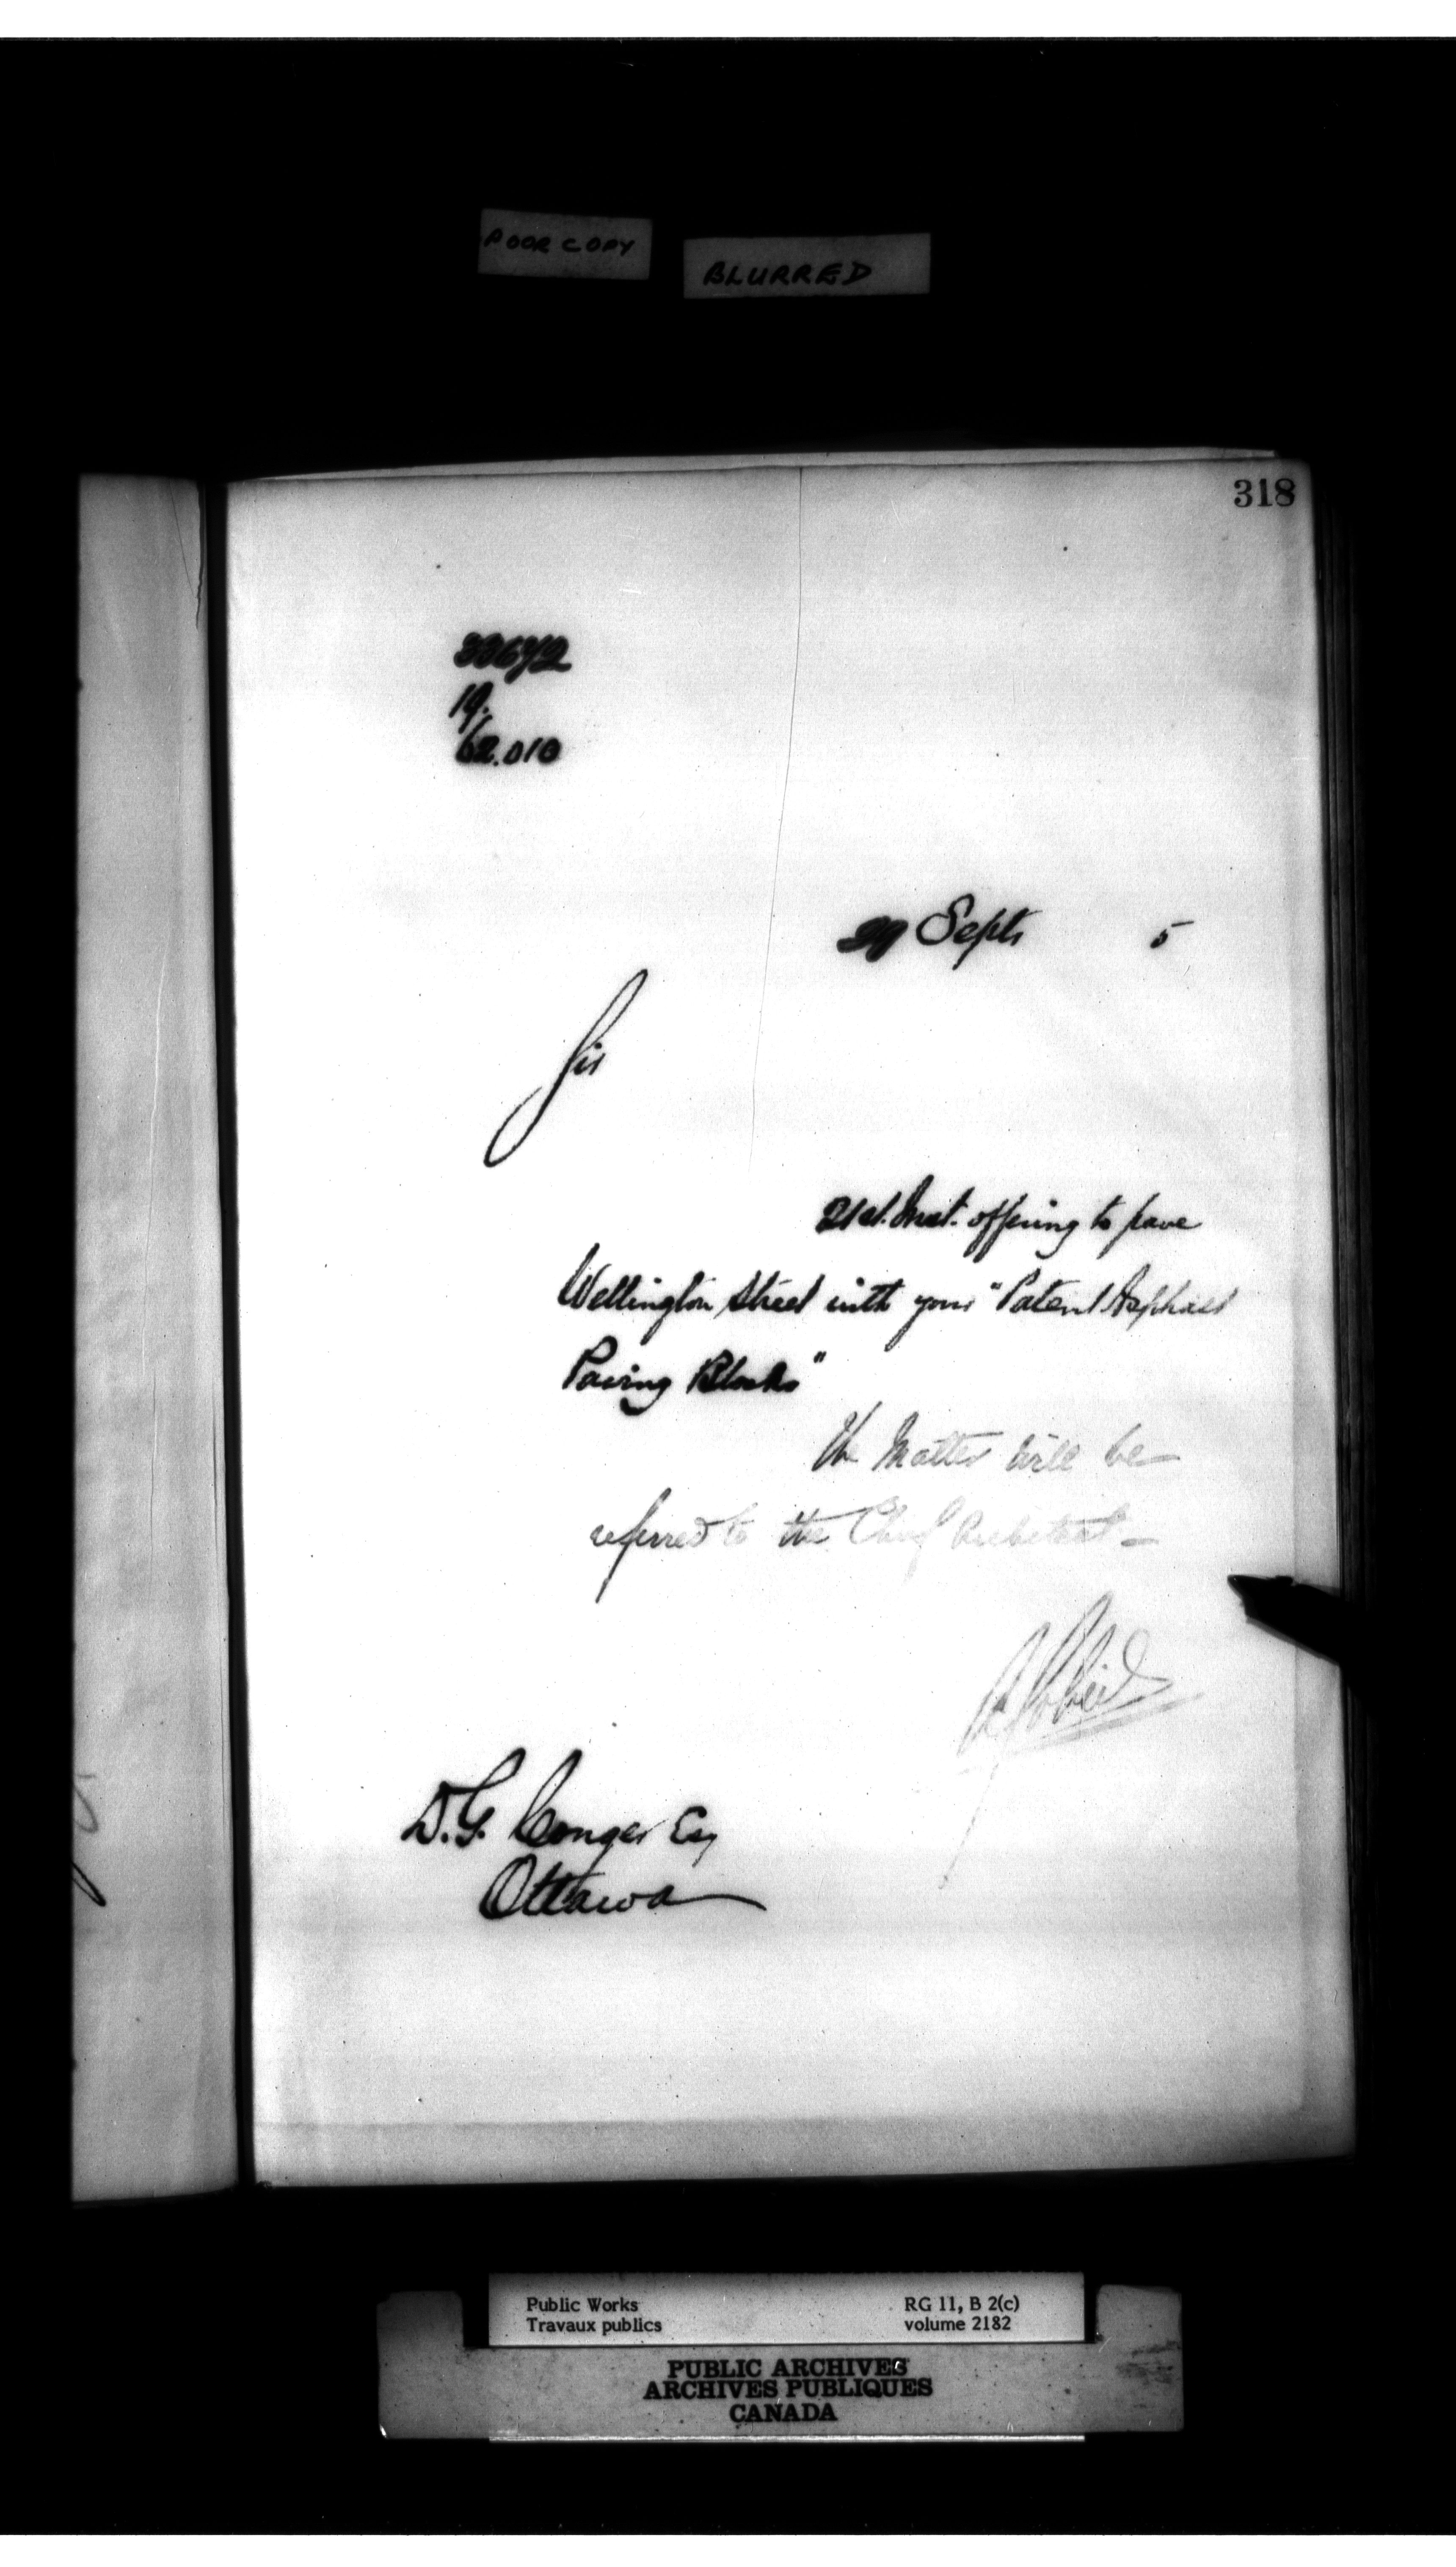 POOR COPY
BLURRED
318
33672
19.
62.010
29 Sept. 5
Sir
21st. Inst. offering to pave
Wellington Street with your "Patent Asphalt
Paving Blocks"
The Matter will be
referred to the Chief Architect —
A Gobeil
D.G. Conger Esq
Ottawa
Public Works
Travaux publics
RG 11, B 2(c)
volume 2182
PUBLIC ARCHIVES
ARCHIVES PUBLIQUES
CANADA